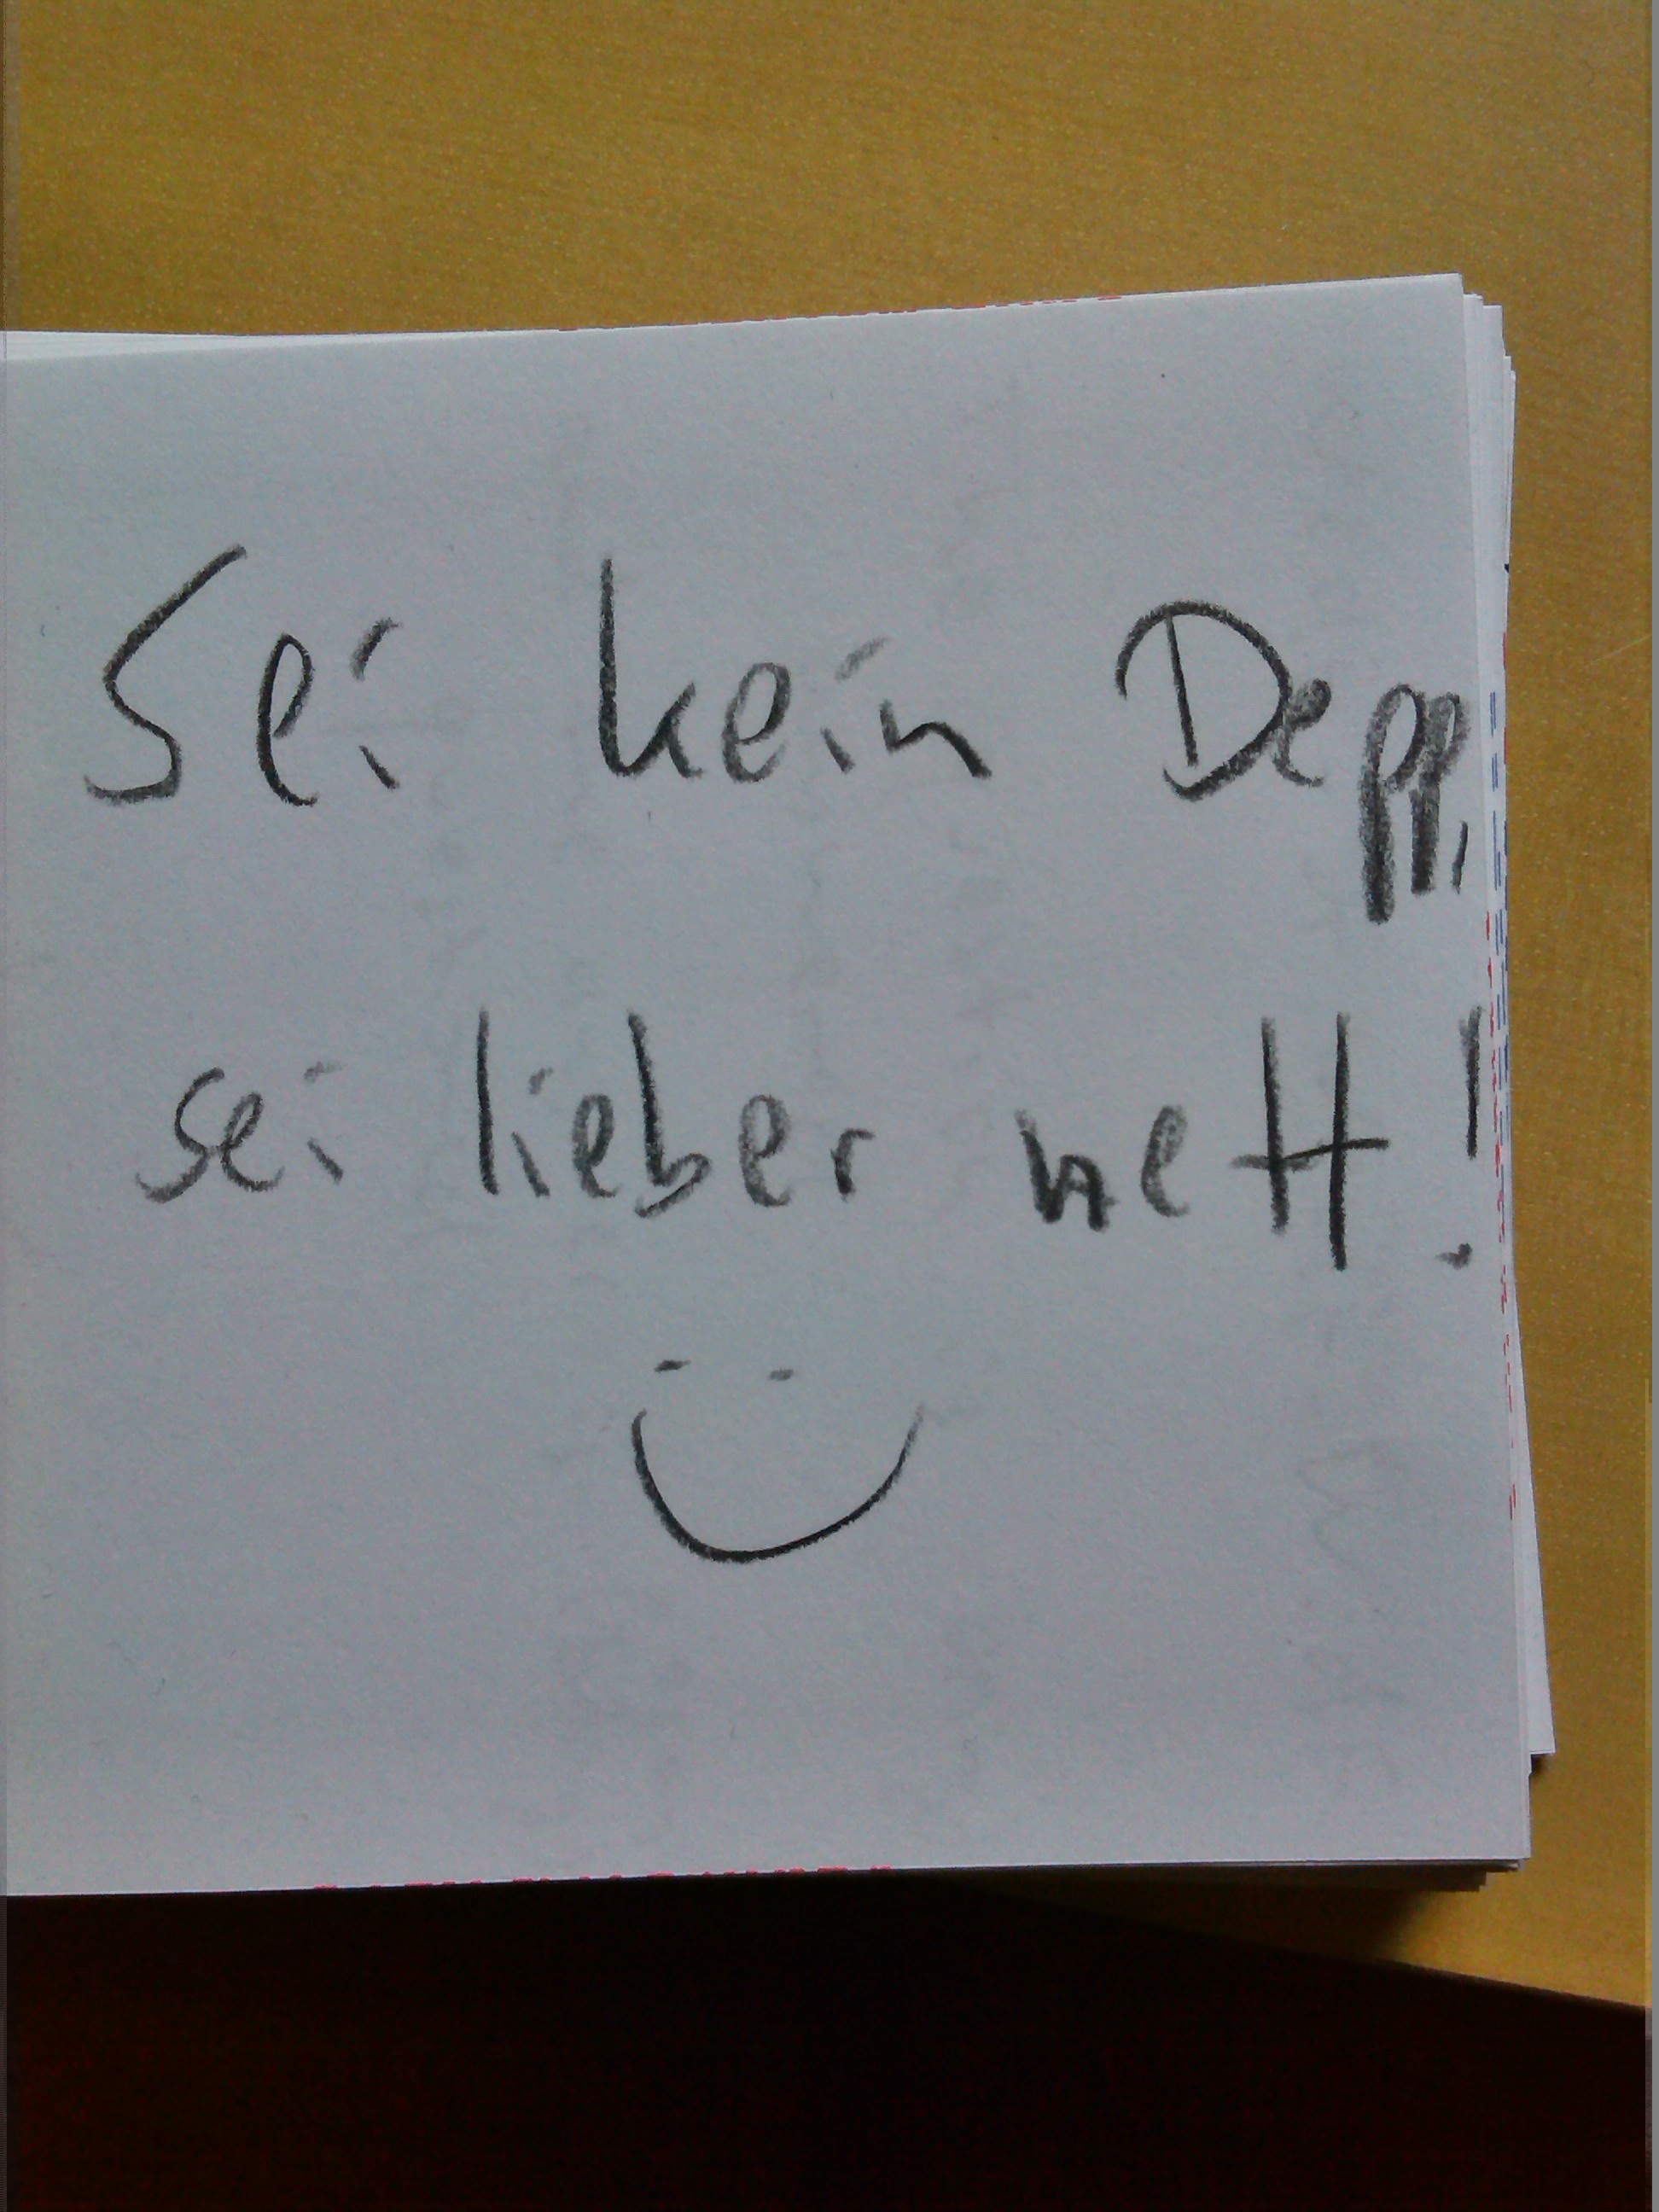 Sei kein Depp,
sei lieber nett!